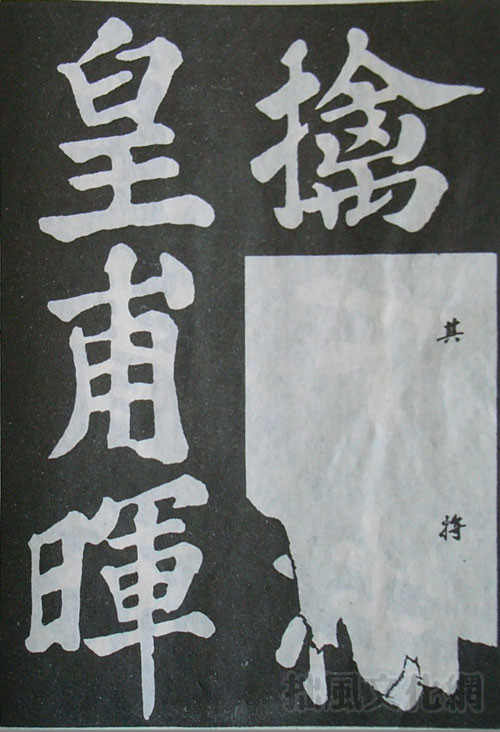 擒其将
皇甫暉
拙風文化網